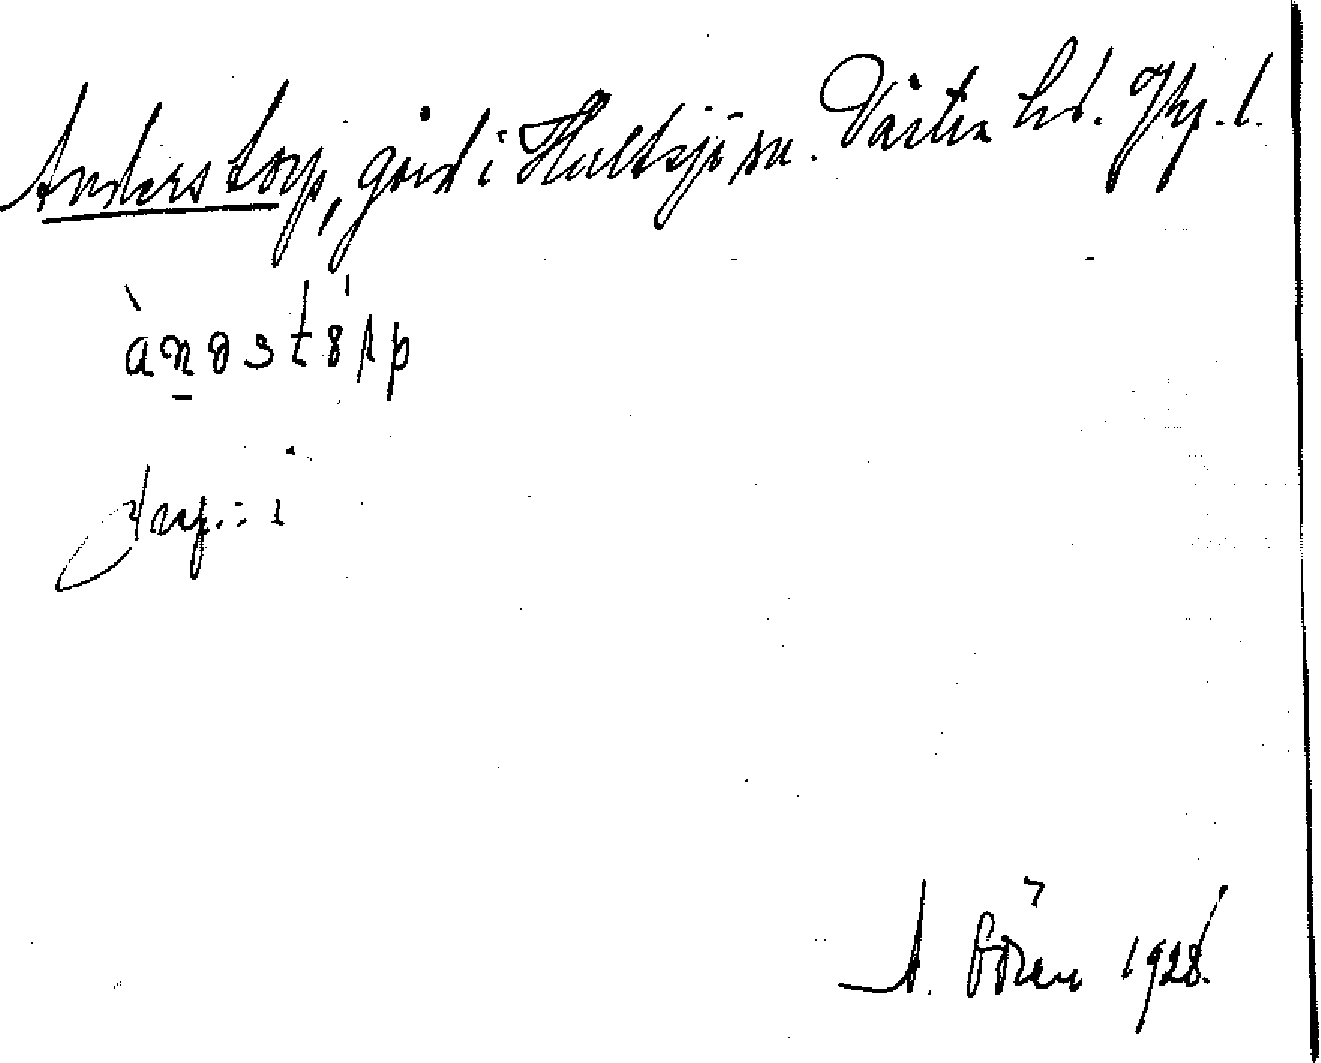 Anderstorp, gård i Hultsjö sn. Västra hd. Jkp. l.
àn̠əstɵ́rp
Prep.: i
A. Borén 1928.